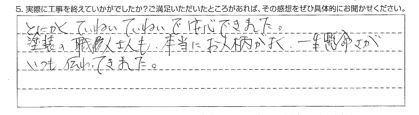 5. 実際に工事を終えていかがでしたか？ご満足いただいたところがあれば、その感想をぜひ具体的にお聞かせください。
とにかく ていねいていねいで 対応できました。
塗装の職人さんも、本当に お人柄がよく、一生懸命さが
いつも 伝わってきました。